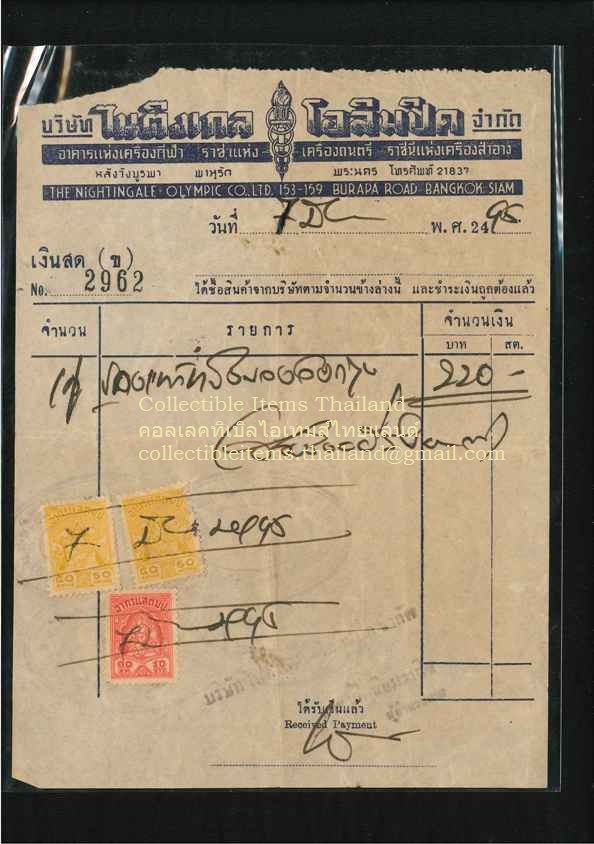 บริษัท ไนติงเกล โอลิมปิค จำกัด
อาคารแห่งเครื่องกีฬา ราชาแห่ง เครื่องดนตรี ราชินีแห่งเครื่องสำอาง
หลังวังบูรพา พาหุรัด พระนคร โทรศัพท์ 21837
THE NIGHTINGALE-OLYMPIC CO.LTD. 153-159 BURAPA ROAD BANGKOK SIAM
วันที่ 7 ธค พ.ศ. 2495
เงินสด (ข)
No. 2962
ได้ซื้อสินค้าจากบริษัทตามจำนวนข้างล่างนี้ และชำระเงินถูกต้องแล้ว
จำนวน รายการ จำนวนเงิน
บาท สต.
220 -
Collectible Items Thailand
คอลเลคทิเบิลไอเทมส์ไทยแลนด์
collectibleitems.thailand@gmail.com
7 ธค 2495
๕๐ ๕๐ ๕๐ ๕๐
อากรแสตมป์
2495
๑๐ ๑๐
ได้รับเงินแล้ว
Received Payment